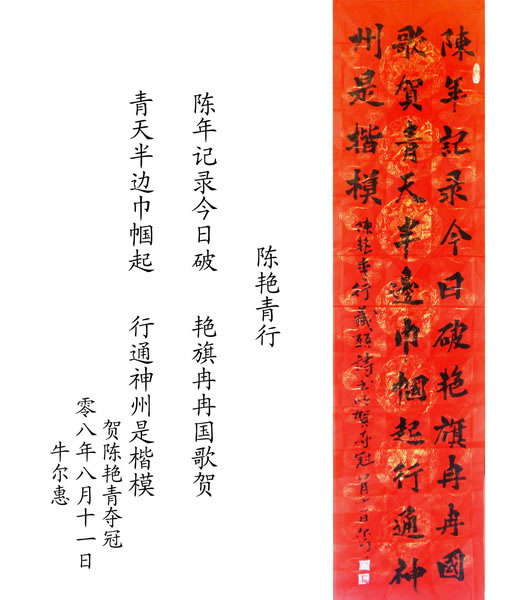 陳年記录今日破艳旗冉冉國
歌賀青天半邊巾帼起行通神
州是楷模
陈艳青行藏頭詩书以賀夺冠
陈艳青行
陈年记录今日破 艳旗冉冉国歌贺
青天半边巾帼起 行通神州是楷模
贺陈艳青夺冠
零八年八月十一日
牛尔惠